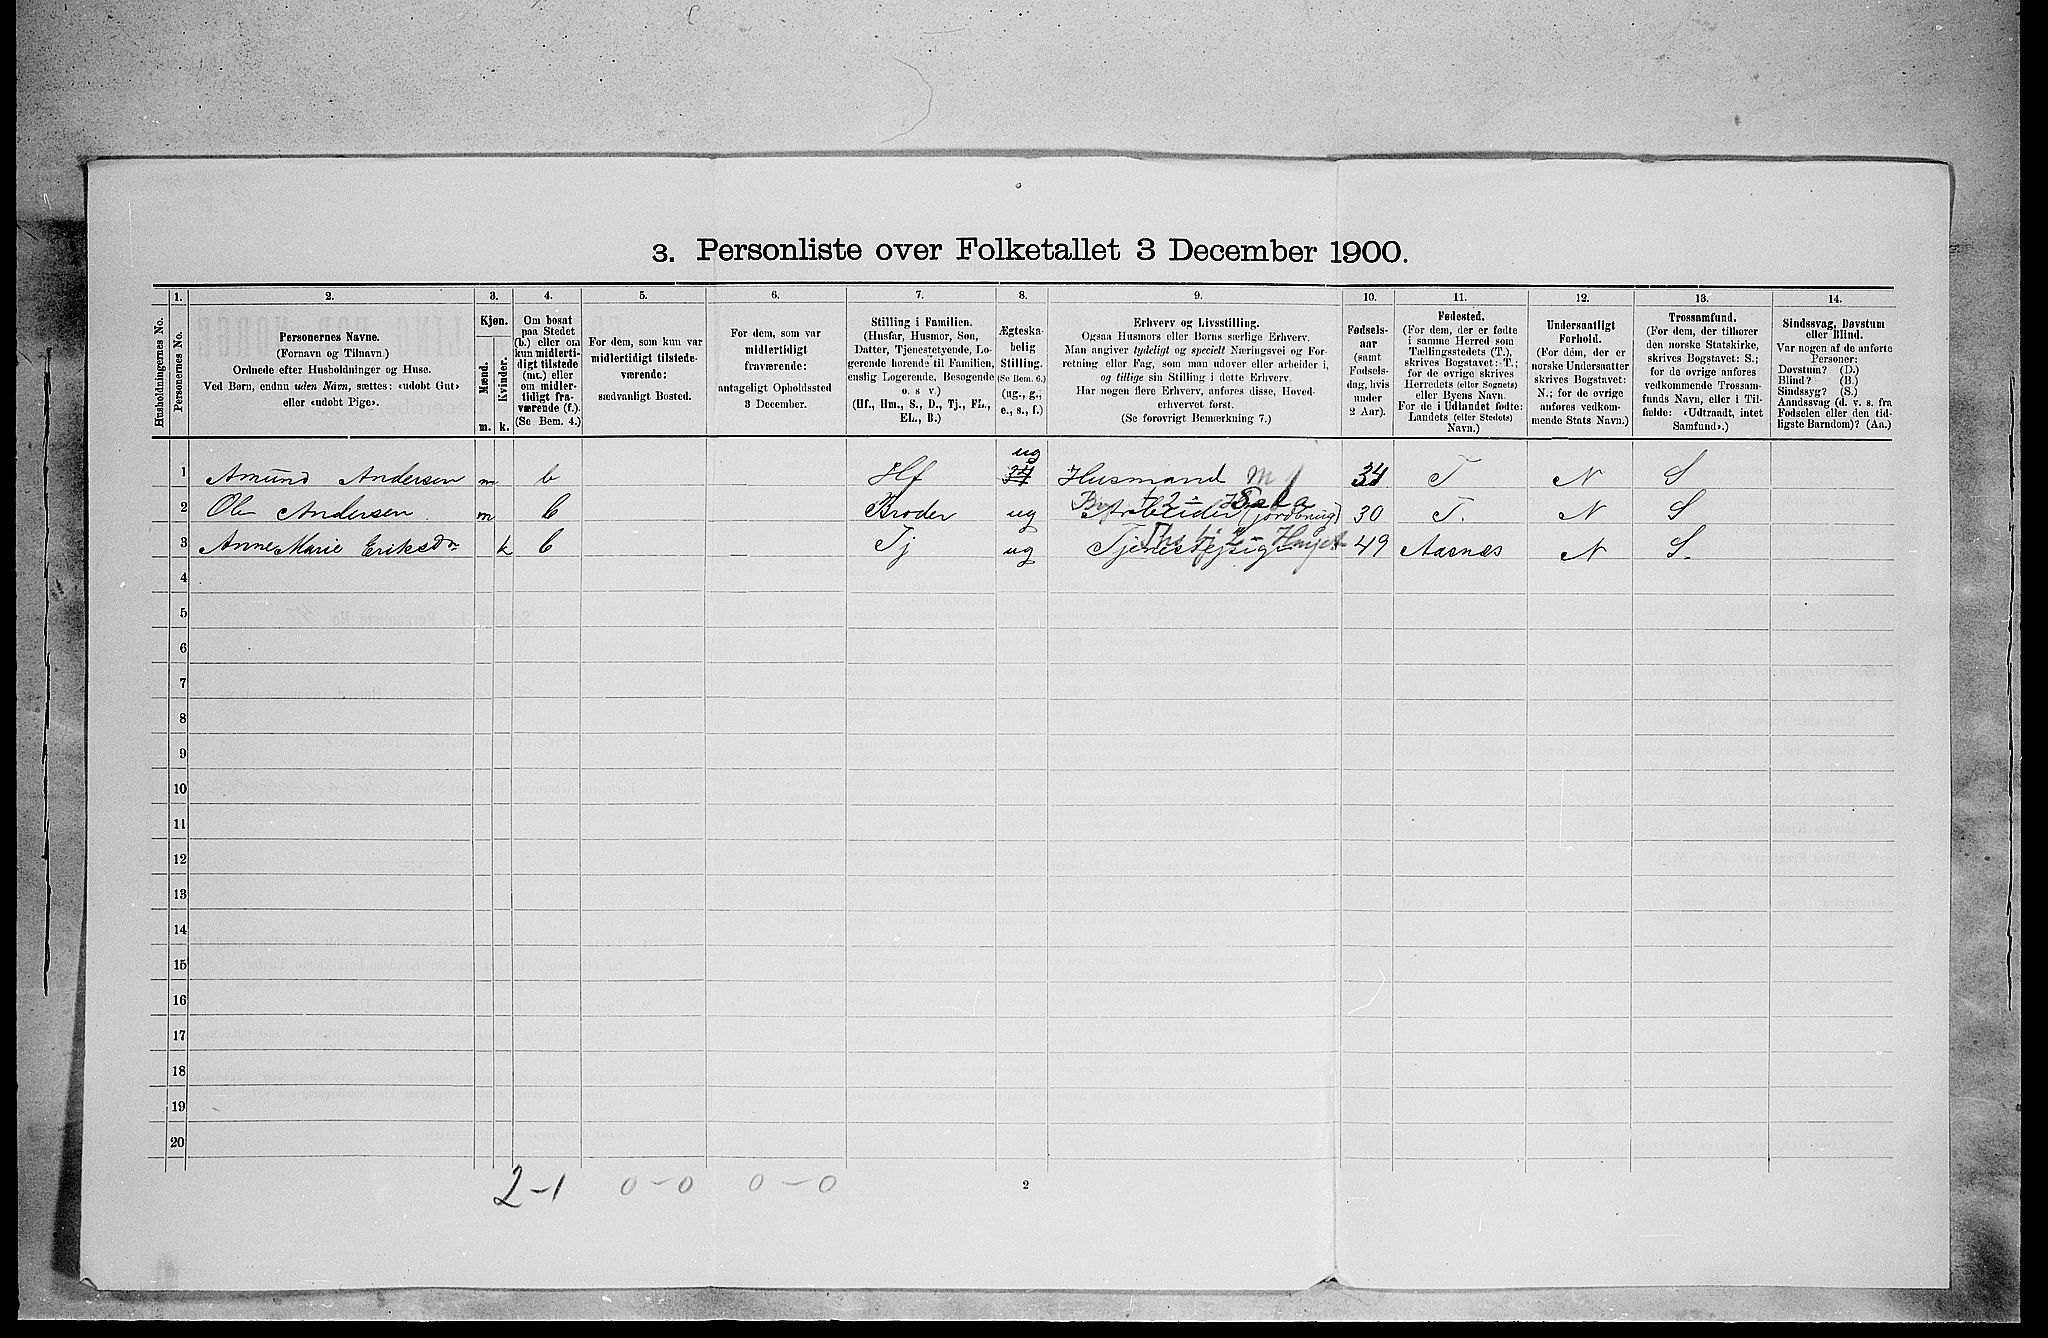 3. Personliste over Folketallet 3 December 1900.
1. 2. 3. 4. 5. 6. 7. 8. 9. 10. 11. 12. 13. 14.
Husholdningernes No.
Personernes No.
Personernes Navne.
(Fornavn og Tilnavn.)
Ordnede efter Husholdninger og Huse.
Ved Børn, endnu uden Navn, sættes: «udøbt Gut»
eller «udøbt Pige».
Kjøn.
Mænd.
Kvinder.
m. k.
Om bosat
paa Stedet
(b.) eller om
kun midlerti-
digt tilstede
(mt.) eller
om midler-
tidigt fra-
værende (f.).
(Se Bem. 4.)
For dem, som kun var
midlertidigt tilstede-
værende:
sædvanligt Bosted.
For dem, som var
midlertidigt
fraværende:
antageligt Opholdssted
3 December.
Stilling i Familien.
(Husfar, Husmor, Søn,
Datter, Tjenestetyende, Lo-
gerende hørende til Familien,
enslig Logerende, Besøgende
o. s. v.)
(Hf., Hm., S., D., Tj., FL.,
EL., B.)
Ægteska-
belig
Stilling.
(Se Bem. 6.)
(ug., g.,
e., s., f.)
Erhverv og Livsstilling.
Ogsaa Husmors eller Børns særlige Erhverv.
Man angiver tydeligt og specielt Næringsvei og For-
retning eller Fag, som man udøver eller arbeider i,
og tillige sin Stilling i dette Erhverv.
Har nogen flere Erhverv, anføres disse, Hoved-
erhvervet først.
(Se forøvrigt Bemærkning 7.)
Fødsels-
aar
(samt
Fødsels-
dag, hvis
under
2 Aar).
Fødested.
(For dem, der er fødte
i samme Herred som
Tællingsstedets (T.),
skrives Bogstavet: T.;
for de øvrige skrives
Herredets (eller Sognets)
eller Byens Navn.
For de i Udlandet fødte:
Landets (eller Stedets)
Navn.)
Undersaatligt
Forhold.
(For dem, der er
norske Undersaatter
skrives Bogstavet:
N.; for de øvrige
anføres vedkom-
mende Stats Navn.)
Trossamfund.
(For dem, der tilhører
den norske Statskirke,
skrives Bogstavet: S.;
for de øvrige anføres
vedkommende Trossam-
funds Navn, eller i Til-
fælde: «Udtraadt, intet
Samfund».)
Sindssvag, Døvstum
eller Blind.
Var nogen af de anførte
Personer:
Døvstum? (D.)
Blind? (B.)
Sindssyg? (S.)
Aandssvag (d. v. s. fra
Fødselen eller den tid-
ligste Barndom)? (Aa.)
ug
1 Amund Andersen m b Hf Husmand m 34 T N S
2 Ole Andersen m b Broder ug Arbeider (jordbrug) 30 T. N S
3 Anne Marie Eriksdr k b Tj ug Tjenestepige 49 Aasnæs N S.
4
5
6
7
8
9
10
11
12
13
14
15
16
17
18
19
20
2-1 0-0 0-0 2